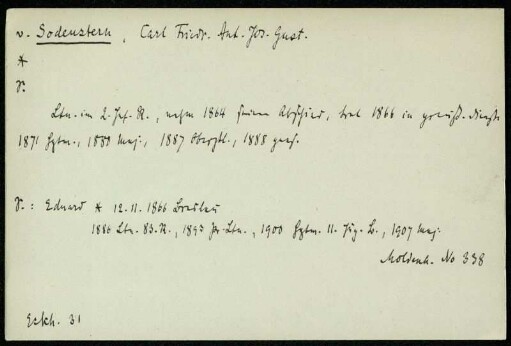 v. Sodenstern, Carl Friedr. Ant. Jos. Gust.
*
V.
Ltn. im 2. Inf. R., nahm 1864 seinen Abschied, trat 1866 in preuß. Dienste
1871 Hptm., 1880 Maj., 1887 Oberstl., 1888 gest.
V.: Eduard * 12.11.1866 Breslau
1886 Ltn. 83. R., 1893 Pr. Ltn., 1900 Hptm. 11. Jäg. B., 1907 Maj.
Moldenh. No 338
Eckh. 31